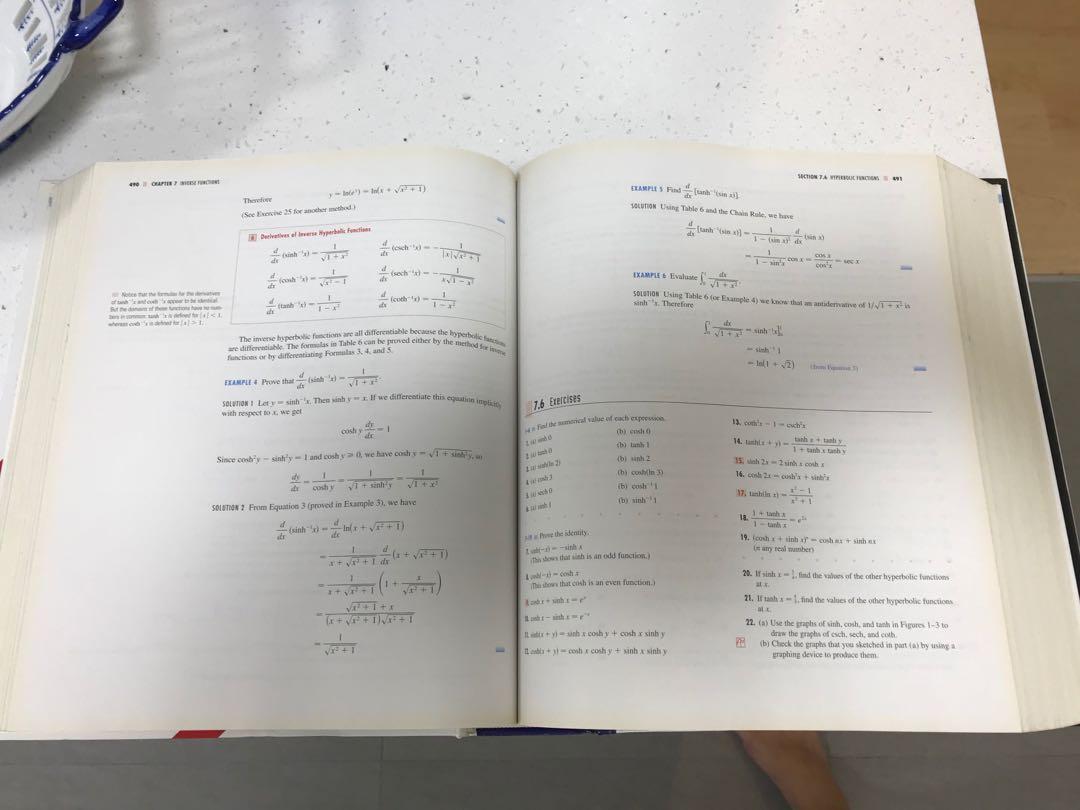 490 CHAPTER 7 INVERSE FUNCTIONS
Therefore y = ln(eʸ) = ln(x + √(x² + 1))
(See Exercise 25 for another method.)
6 Derivatives of Inverse Hyperbolic Functions
d/dx (sinh⁻¹x) = 1/√(1 + x²) d/dx (csch⁻¹x) = −1/(|x|√(x² + 1))
d/dx (cosh⁻¹x) = 1/√(x² − 1) d/dx (sech⁻¹x) = −1/(x√(1 − x²))
d/dx (tanh⁻¹x) = 1/(1 − x²) d/dx (coth⁻¹x) = 1/(1 − x²)
Notice that the formulas for the derivatives
of tanh⁻¹x and coth⁻¹x appear to be identical.
But the domains of these functions have no num-
bers in common: tanh⁻¹x is defined for |x| < 1,
whereas coth⁻¹x is defined for |x| > 1.
The inverse hyperbolic functions are all differentiable because the hyperbolic functions
are differentiable. The formulas in Table 6 can be proved either by the method for inverse
functions or by differentiating Formulas 3, 4, and 5.
EXAMPLE 4 Prove that d/dx (sinh⁻¹x) = 1/√(1 + x²).
SOLUTION 1 Let y = sinh⁻¹x. Then sinh y = x. If we differentiate this equation implicitly
with respect to x, we get
cosh y dy/dx = 1
Since cosh²y − sinh²y = 1 and cosh y ≥ 0, we have cosh y = √(1 + sinh²y), so
dy/dx = 1/cosh y = 1/√(1 + sinh²y) = 1/√(1 + x²)
SOLUTION 2 From Equation 3 (proved in Example 3), we have
d/dx (sinh⁻¹x) = d/dx ln(x + √(x² + 1))
= 1/(x + √(x² + 1)) d/dx (x + √(x² + 1))
= 1/(x + √(x² + 1)) (1 + x/√(x² + 1))
= (√(x² + 1) + x)/((x + √(x² + 1))√(x² + 1))
= 1/√(x² + 1)
SECTION 7.6 HYPERBOLIC FUNCTIONS 491
EXAMPLE 5 Find d/dx [tanh⁻¹(sin x)].
SOLUTION Using Table 6 and the Chain Rule, we have
d/dx [tanh⁻¹(sin x)] = 1/(1 − (sin x)²) d/dx (sin x)
= 1/(1 − sin²x) cos x = cos x/cos²x = sec x
EXAMPLE 6 Evaluate ∫₀¹ dx/√(1 + x²).
SOLUTION Using Table 6 (or Example 4) we know that an antiderivative of 1/√(1 + x²) is
sinh⁻¹x. Therefore
∫₀¹ dx/√(1 + x²) = sinh⁻¹x]₀¹
= sinh⁻¹ 1
= ln(1 + √2) (from Equation 3)
7.6 Exercises
Find the numerical value of each expression.
1. (a) sinh 0 (b) cosh 0
2. (a) tanh 0 (b) tanh 1
3. (a) sinh(ln 2) (b) sinh 2
4. (a) cosh 3 (b) cosh(ln 3)
5. (a) sech 0 (b) cosh⁻¹ 1
6. (a) sinh 1 (b) sinh⁻¹ 1
Prove the identity.
7. sinh(−x) = −sinh x
(This shows that sinh is an odd function.)
8. cosh(−x) = cosh x
(This shows that cosh is an even function.)
9. cosh x + sinh x = eˣ
10. cosh x − sinh x = e⁻ˣ
11. sinh(x + y) = sinh x cosh y + cosh x sinh y
12. cosh(x + y) = cosh x cosh y + sinh x sinh y
13. coth²x − 1 = csch²x
14. tanh(x + y) = (tanh x + tanh y)/(1 + tanh x tanh y)
15. sinh 2x = 2 sinh x cosh x
16. cosh 2x = cosh²x + sinh²x
17. tanh(ln x) = (x² − 1)/(x² + 1)
18. (1 + tanh x)/(1 − tanh x) = e²ˣ
19. (cosh x + sinh x)ⁿ = cosh nx + sinh nx
(n any real number)
20. If sinh x = , find the values of the other hyperbolic functions
at x.
21. If tanh x = , find the values of the other hyperbolic functions
at x.
22. (a) Use the graphs of sinh, cosh, and tanh in Figures 1–3 to
draw the graphs of csch, sech, and coth.
(b) Check the graphs that you sketched in part (a) by using a
graphing device to produce them.